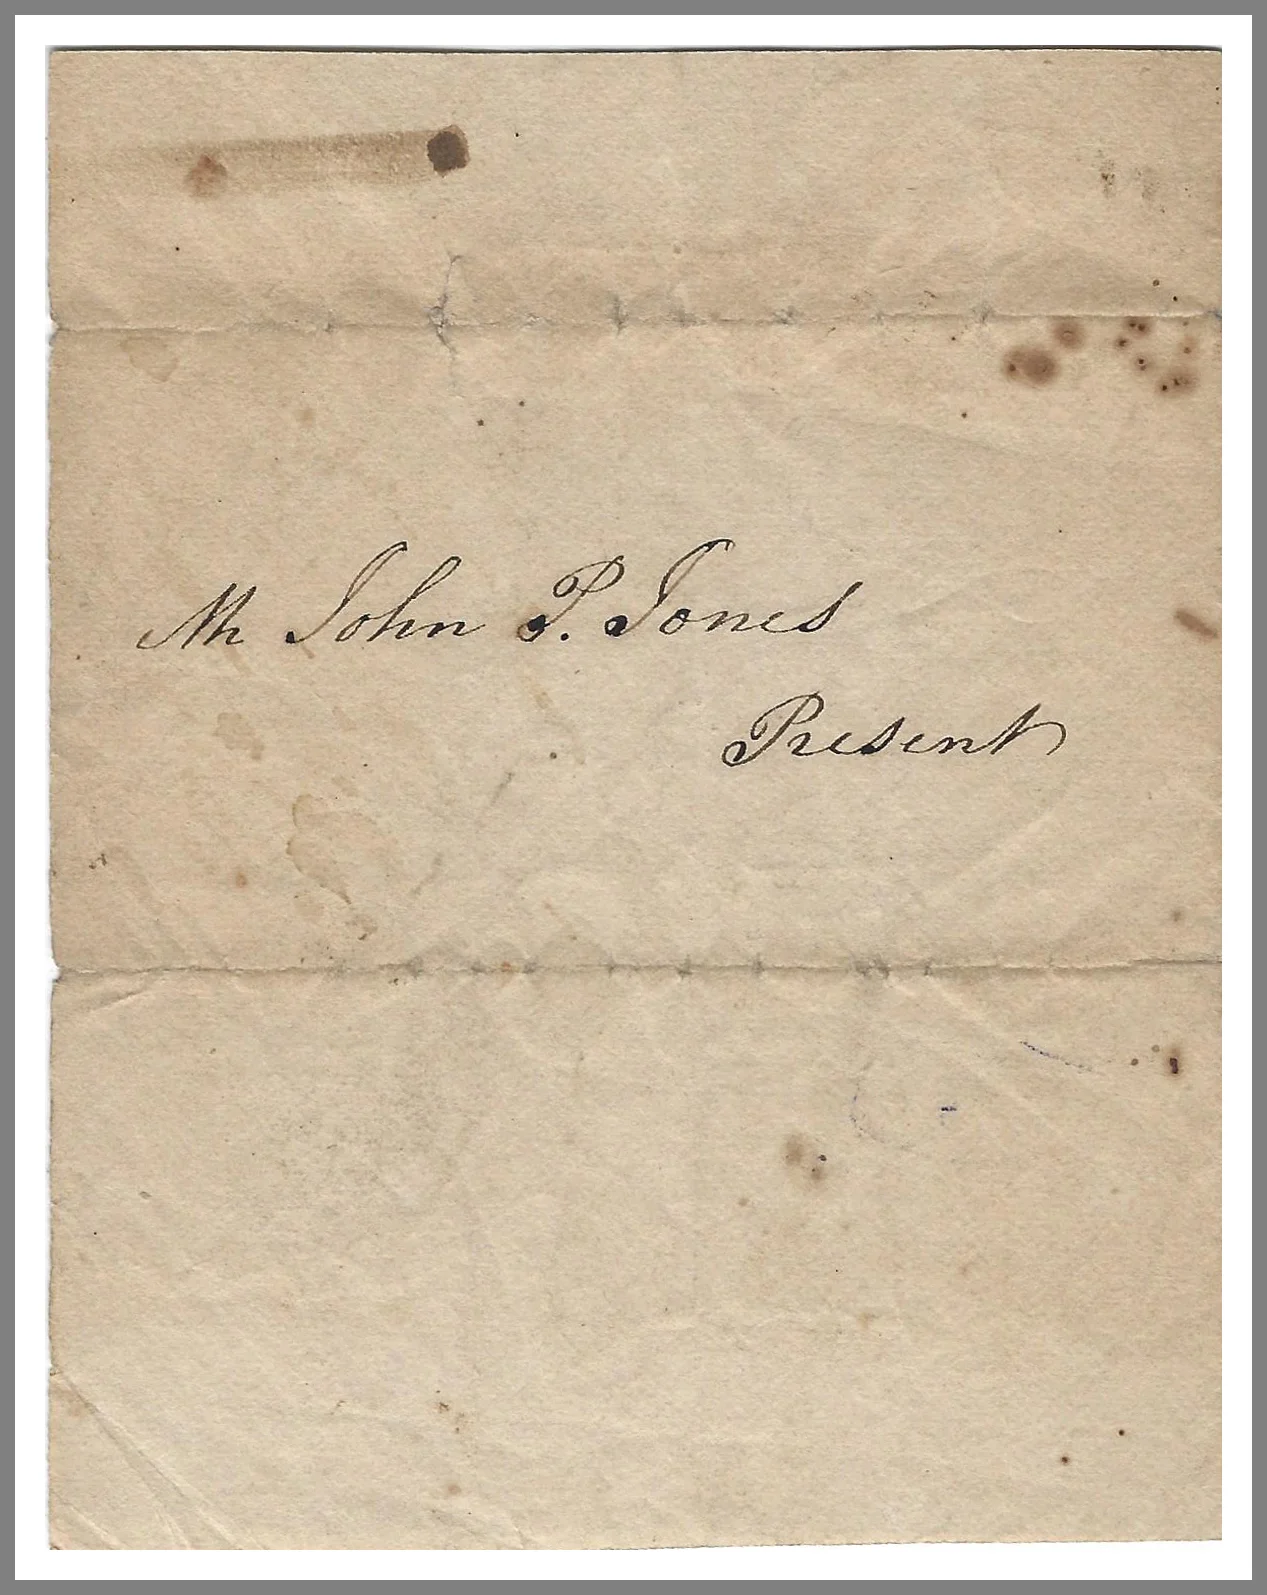 Mr John P. Jones
Present